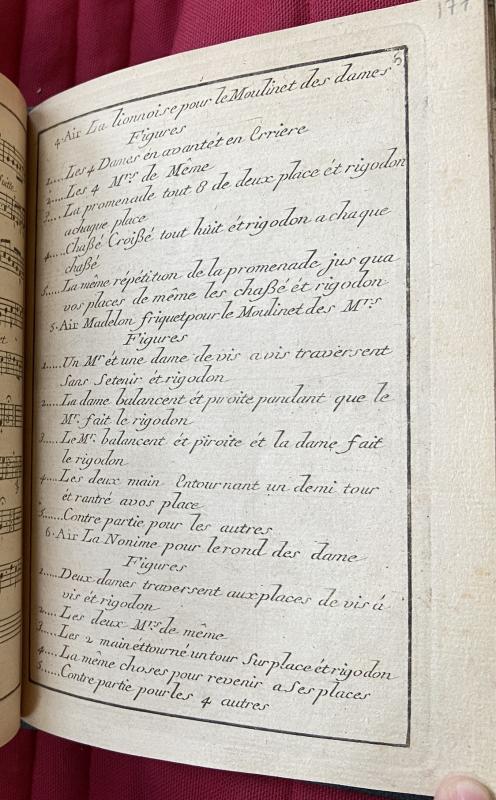 177
5
4. Air La lionnoise pour le Moulinet des dames
Figures
1.... Les 4 Dames én avant ét en Erriere
2.... Les 4 Mrs de Même
3.... La promenade tout 8 de deux place ét rigodon
a chaque place
4.... Chaßé Croißé tout huit ét rigodon a chaque
chaßé
5.... La même répétition de la promenade jus qua
vos places de même les chaßé ét rigodon
5. Air Madelon friquet pour le Moulinet des Mrs
Figures
1.... Un Mr ét une dame de vis a vis traversent
Sans Setenir ét rigodon
2.... La dame balancent ét piroite pandant que le
Mr. fait le rigodon
3.... Le Mr. balancent ét piroite ét la dame fait
le rigodon
4.... Les deux main Entournant un demi tour
ét rantré avos place
5..... Contre partie pour les autres
6. Air La Nonime pour le rond des dame
Figures
1..... Deux dames traversent aux places de vis á
vis ét rigodon
2.... Les deux Mrs de même
3.... Les 2 main ét tourné un tour Sur place ét rigodon
4.... La même choses pour revenir a Ses places
5..... Contre partie pour les 4 autres